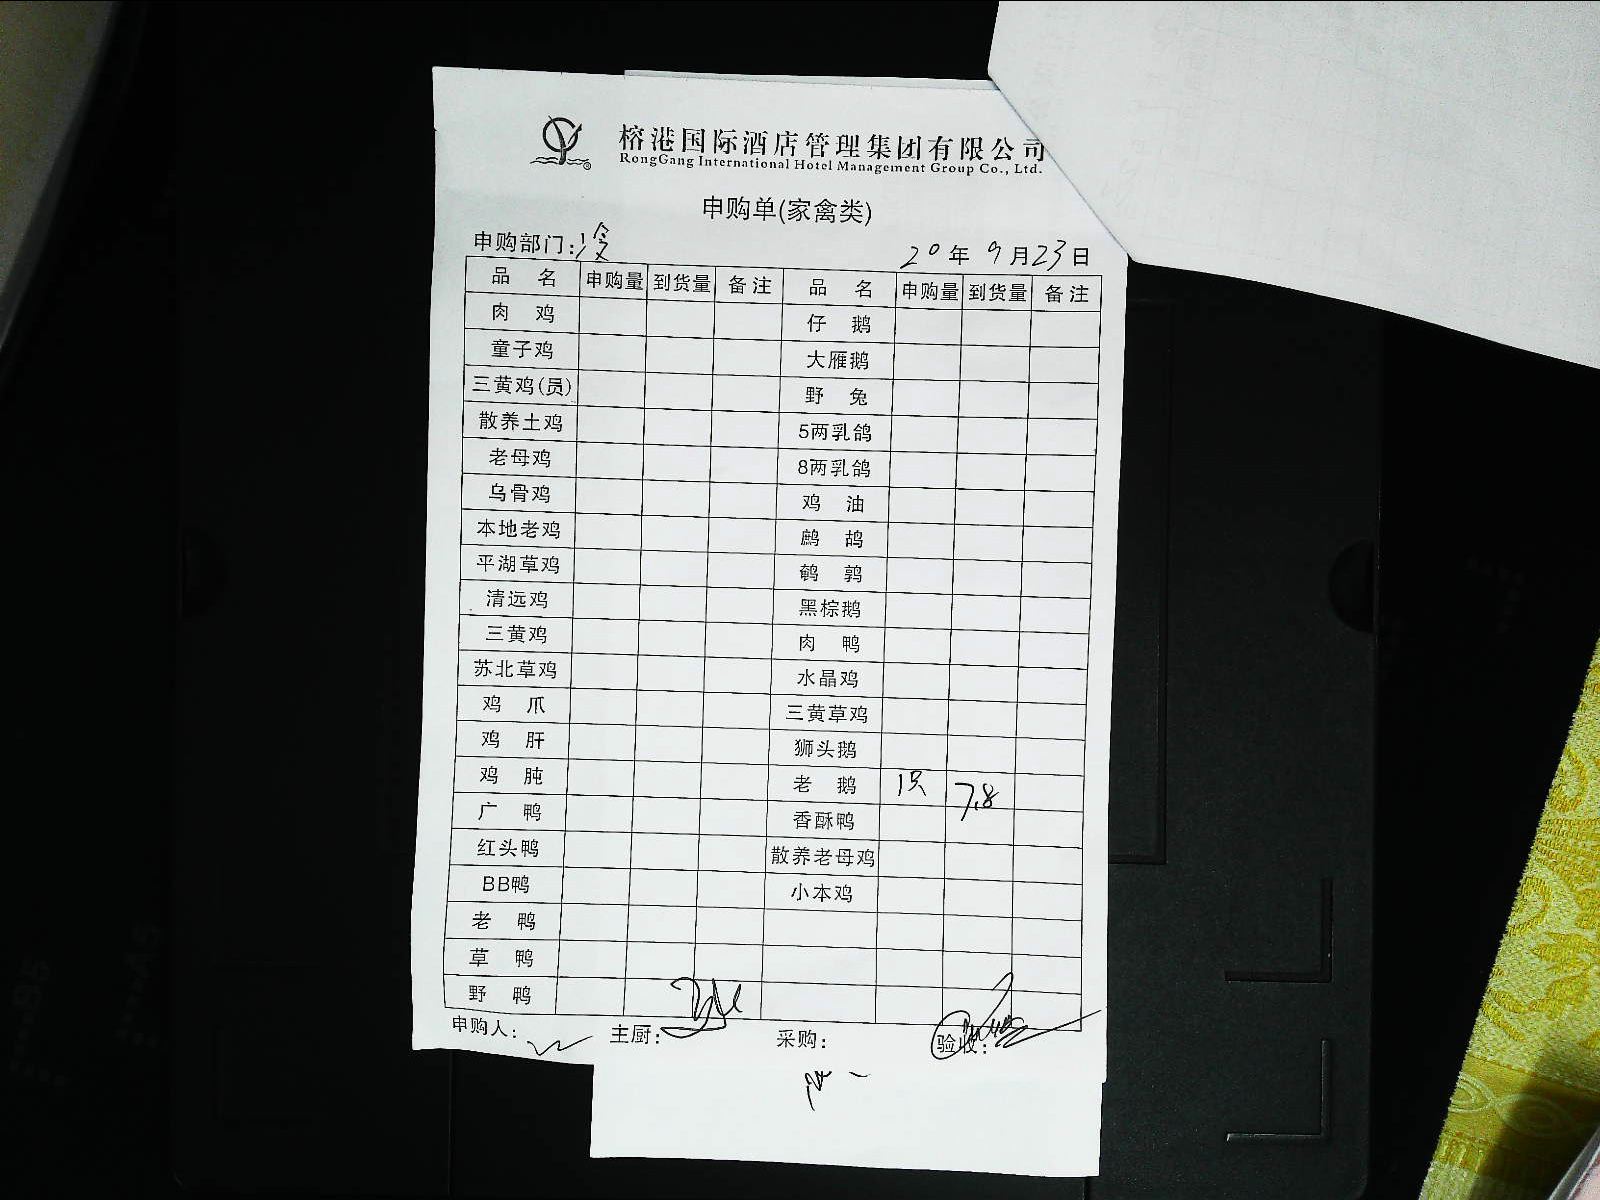 榕港国际酒店管理集团有限公司
RongGang International Hotel Management Group Co., Ltd.
申购单(家禽类)
申购部门:冷 20年9月23日
品 名 申购量 到货量 备注 品 名 申购量 到货量 备注
肉 鸡 仔 鹅
童子鸡 大雁鹅
三黄鸡(员) 野 兔
散养土鸡 5两乳鸽
老母鸡 8两乳鸽
乌骨鸡 鸡 油
本地老鸡 鹧 鸪
平湖草鸡 鹌 鹑
清远鸡 黑棕鹅
三黄鸡 肉 鸭
苏北草鸡 水晶鸡
鸡 爪 三黄草鸡
鸡 肝 狮头鹅
鸡 肫 老 鹅 1只 7.8
广 鸭 香酥鸭
红头鸭 散养老母鸡
BB鸭 小本鸡
老 鸭
草 鸭
野 鸭
申购人: 主厨: 采购: 验收: